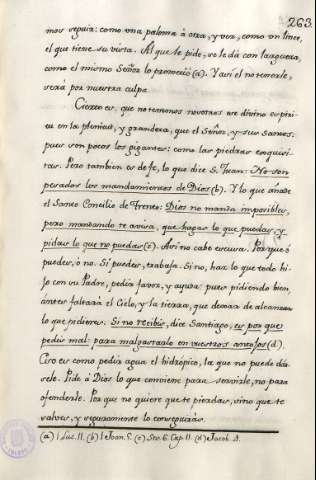 263.
mos seguir: como una paloma á otra, y ver, como un lince,
el que tiene su vista. Al que le pide, se le dá con largueza,
como el mismo Señor lo prometió (a). Y así el no tenerle,
será por nuestra culpa.
Cierto es, que no tenemos nosotros este divino espíri-
tu en la plenitud, y grandeza, que el Señor, y sus Santos:
pues son pocos los gigantes: como las piedras exquisi-
tas. Pero tambien es de fe, lo que dice S. Juan: No son
pesados los mandamientos de Dios (b). Y lo que añade
el Santo Concilio de Trento: Dios no manda imposibles,
pero mandando te avisa, que hagas lo que puedas, y
pidas lo que no puedas (c). Así no cabe excusa. Porque ó
puedes, ó no. Si puedes, trabaja. Si no, haz lo que todo hi-
jo con su Padre, pedir favor, y ayuda: pues pidiendo bien,
ántes faltará el Cielo, y la tierra, que dexara de alcanzar
lo que pidieres. Si no recibís, dice Santiago, es por que
pedís mal: para malgastarlo en vuestros antojos (d).
Eso es como pedir agua el hidrópico, la que no puede dár-
sele. Pide á Dios lo que conviene para servirle, no para
ofenderle. Por que no quiere que te pierdas, sino que te
salves, y seguramente lo conseguirás.
(a) Luc. 11. (b) 1 Joan. 5. (c) Ses. 6. Cap. 11. (d) Jacob. 4.